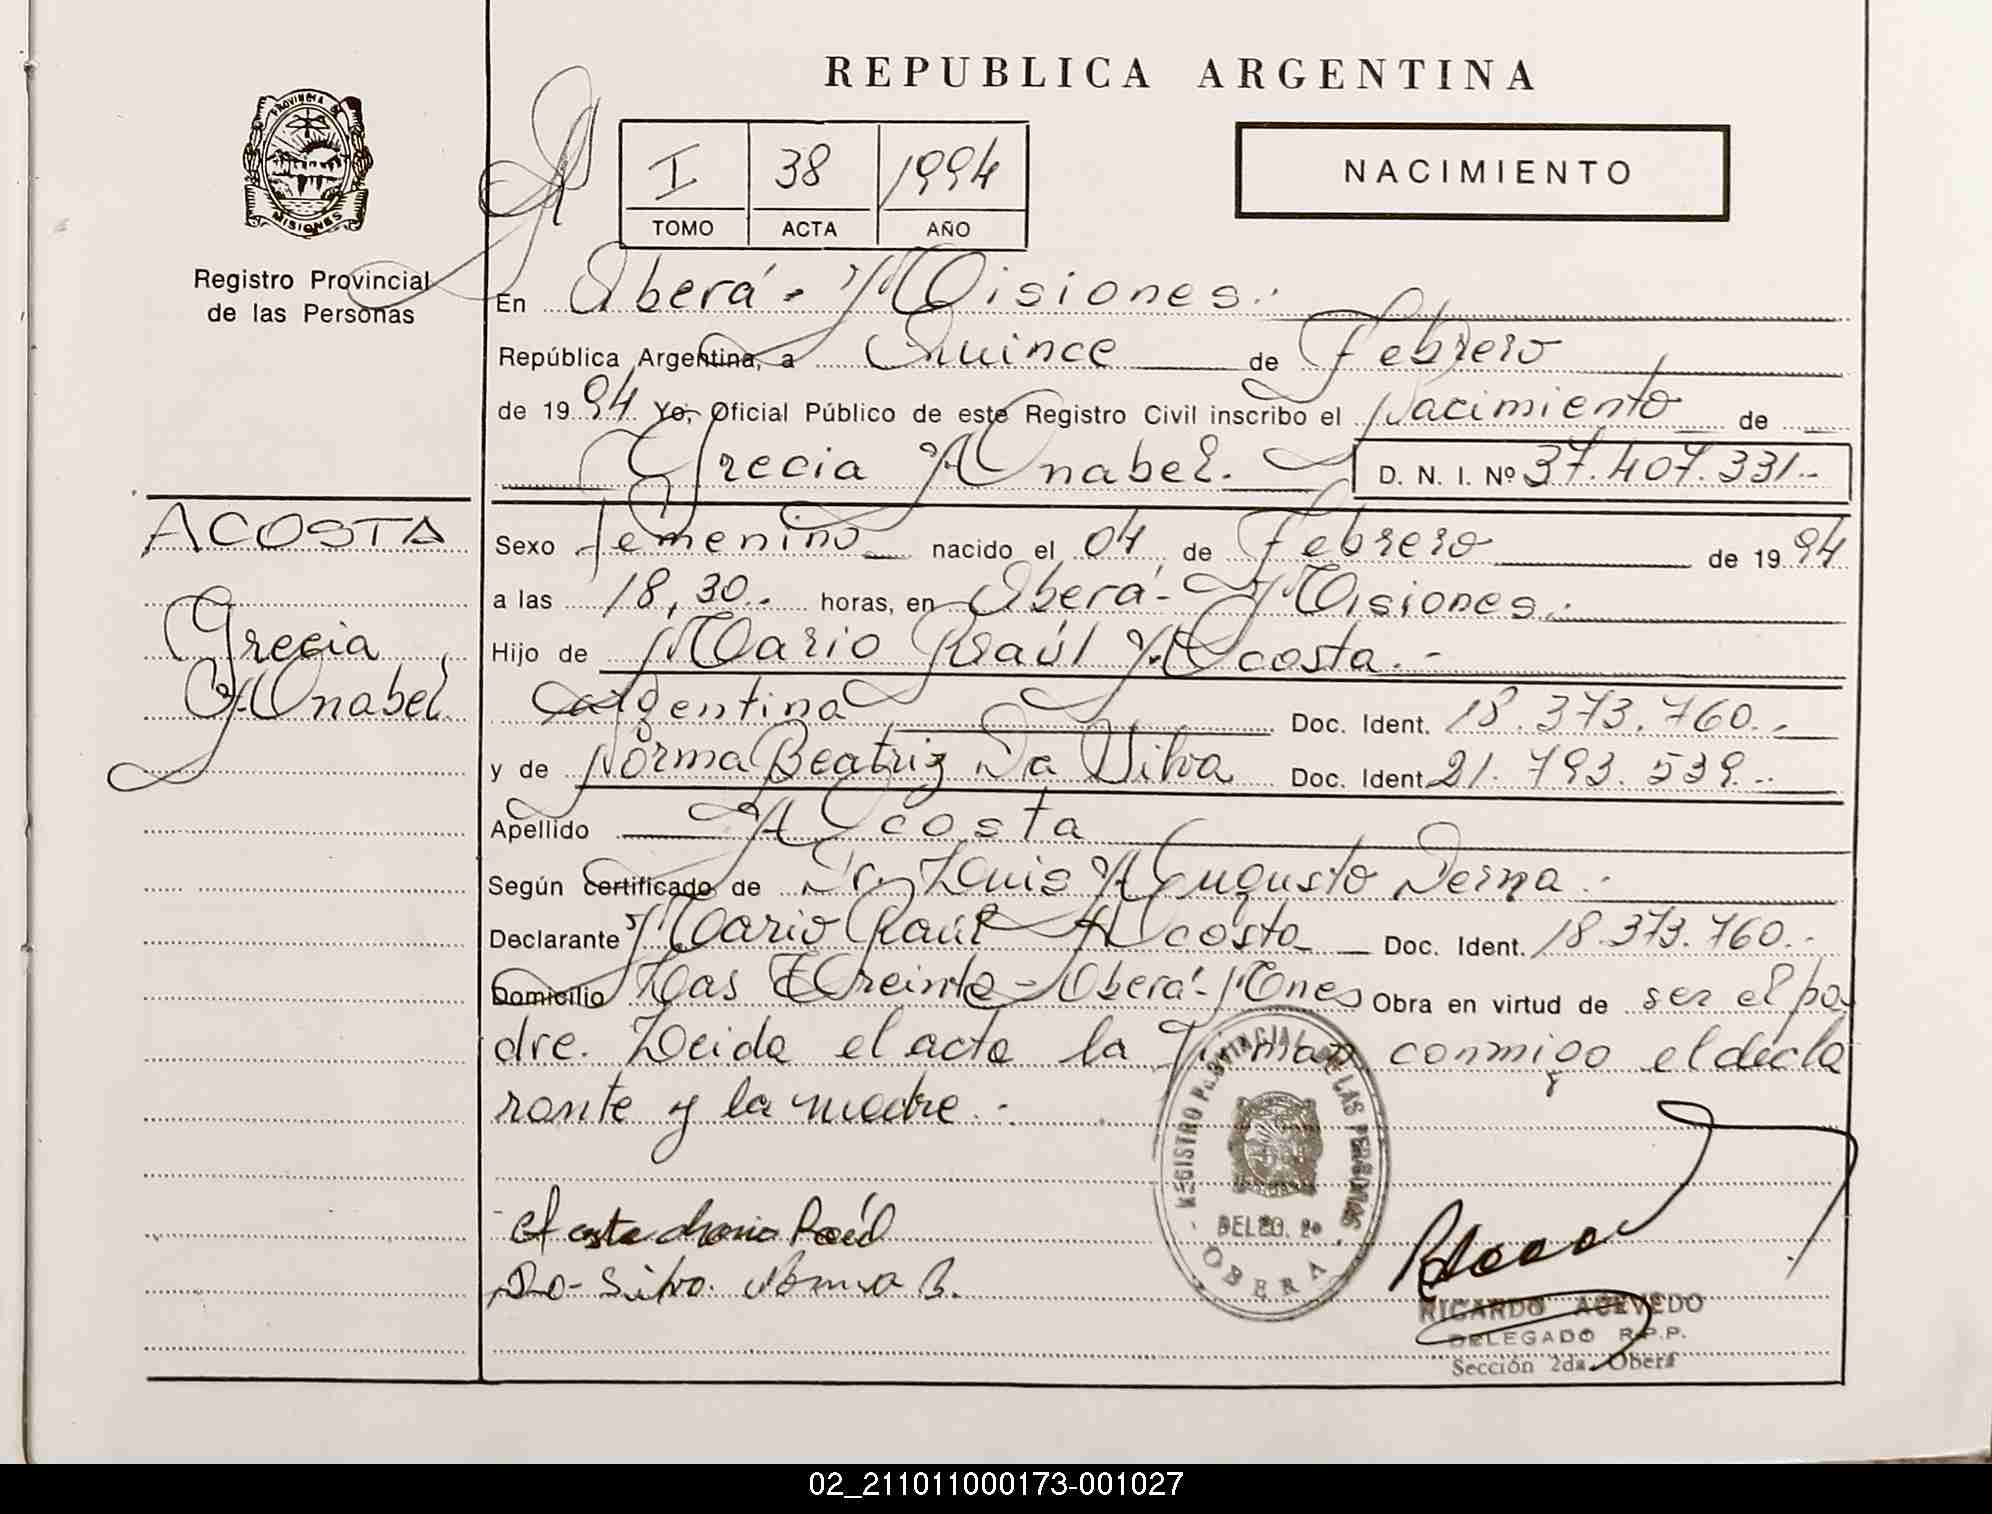 REPUBLICA ARGENTINA
PROVINCIA DE
MISIONES
Registro Provincial
de las Personas
I 38 1994
TOMO ACTA AÑO
NACIMIENTO
En Oberá - Misiones.-
República Argentina, a Quince de Febrero
de 1994 Yo, Oficial Público de este Registro Civil inscribo el Nacimiento de
Grecia Anabel. D. N. I. Nº 37.407.331.-
ACOSTA
Grecia
Anabel
Sexo femenino nacido el 04 de Febrero de 1994
a las 18,30.- horas, en Oberá - Misiones.-
Hijo de Mario Raúl Acosta.-
Argentina Doc. Ident. 18.373.760.-
y de Norma Beatriz Da Silva Doc. Ident. 21.793.539.-
Apellido Acosta
Según certificado de Dr. Luis Augusto Derna.-
Declarante Mario Raúl Acosta Doc. Ident. 18.373.760.-
Domicilio Las Treinta - Oberá - Mnes Obra en virtud de ser el pa
dre. Leida el acta la firman conmigo el decla
rante y la madre.-
REGISTRO PROVINCIAL DE LAS PERSONAS
DELEG. 2ª
OBERA
Acosta Mario Raúl
Da Silva Norma B.
RICARDO ACEVEDO
DELEGADO R.P.P.
Sección 2da. Oberá
02_211011000173-001027